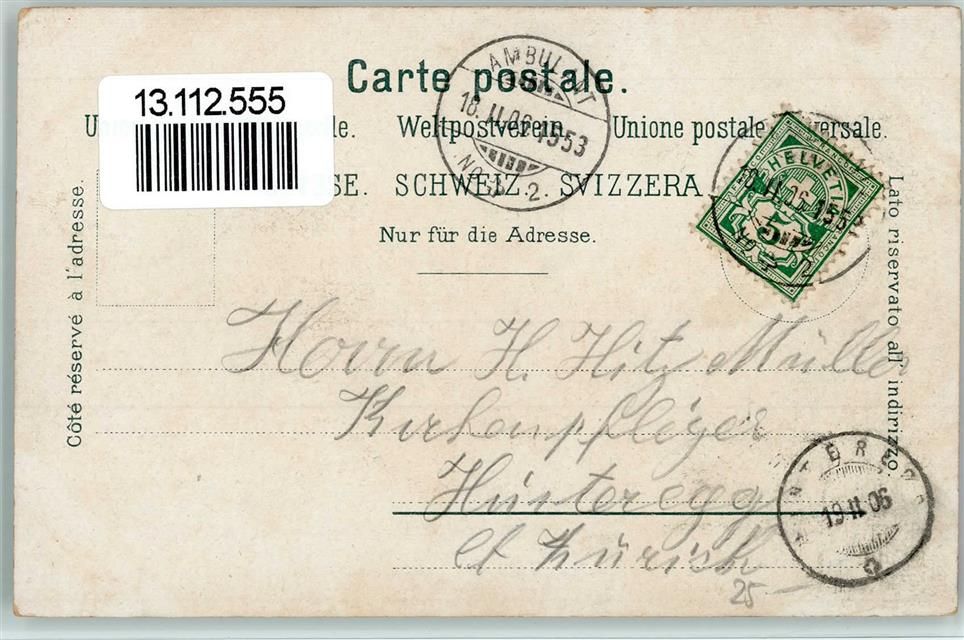 Carte postale.
13.112.555
Weltpostverein. Unione postale
SCHWEIZ. SVIZZERA
Nur für die Adresse.
Côté réservé à l'adresse.
Lato riservato all' indirizzo.
AMBULANT
18.II.06-1553
No. 2
HELVETIA
5
Herrn H. Hitz Müller
Kirchenpfleger
Hinteregg
Ct Zürich
HINTEREGG
19.II.06
25